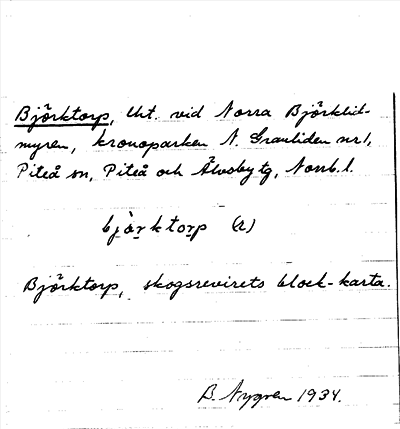 Björktorp, lht. vid Norra Björklid-
myren, kronoparken N. Granliden nr 1,
Piteå sn, Piteå och Älvsby tg, Norrb. l.
bjärktorp (2)
Björktorp, skogsrevirets block-karta.
B. Nygren 1934.